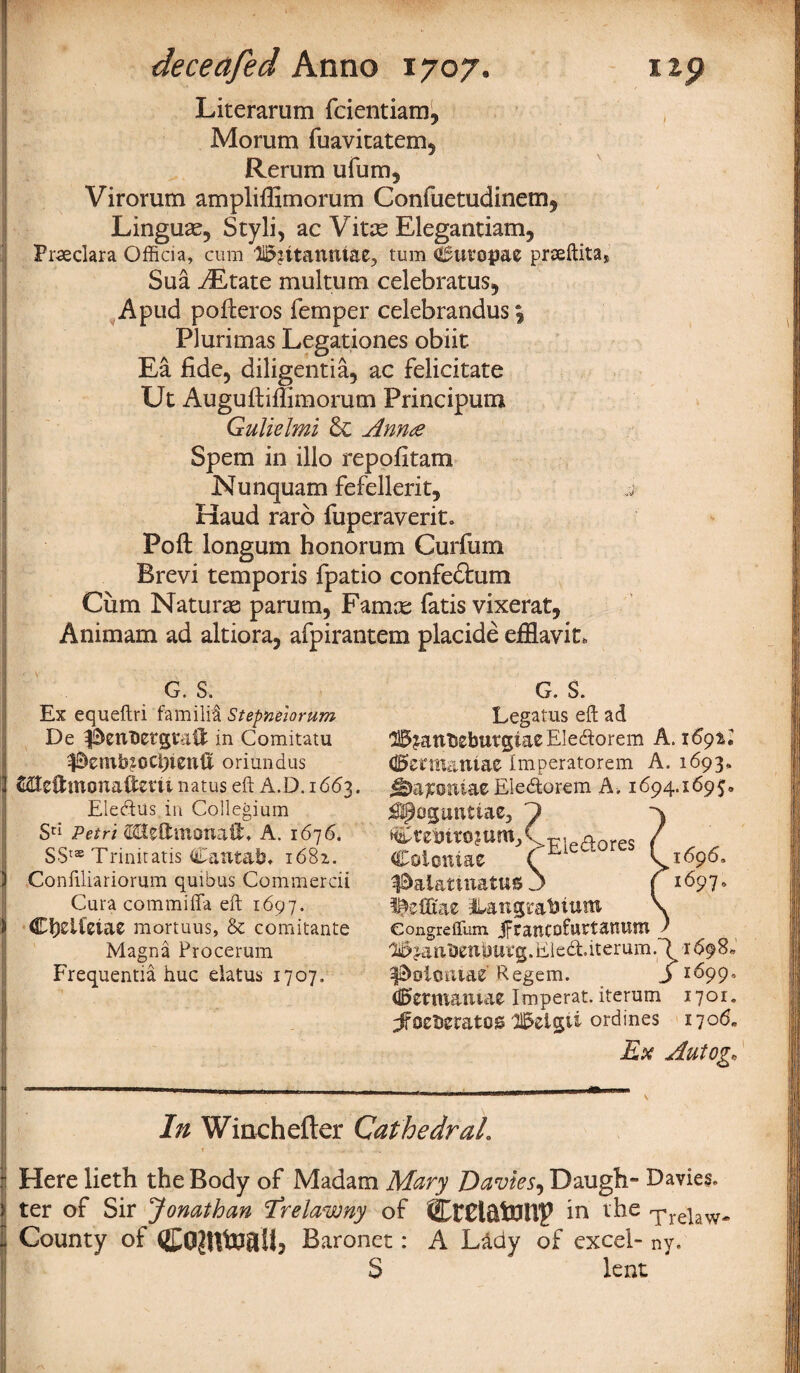 deceaſed Anno 1707. 129
Literarum ſcientiam,
Morum ſuavitatem,
Rerum uſum,
Virorum ampliſſimorum Conſuetudinem,
Linguæ, Styli, ac Vitæ Elegantiam,
Præclara Officia, cum Britanniae, tum Europae præſtita,
Suâ Ætate multum celebratus,
Apud poſteros ſemper celebrandus;
Plurimas Legationes obiit
Eâ fide, diligentiâ, ac felicitate
Ut Auguſtiſſimorum Principum
Gulielmi & Annæ
Spem in illo repoſitam
Nunquam fefellerit,
Haud raro ſuperaverit.
Poſt longum honorum Curſum
Brevi temporis ſpatio confectum
Cùm Naturæ parum, Famæ ſatis vixerat,
Animam ad altiora, aſpirantem placide efflavit.
G. S.
Ex equeſtri familiâ Stepneiorum
De Pendergraſt in Comitatu
Pembrochienſi oriundus
Weſtmonaſterii natus eſt A.D. 1663.
Electus in Collegium
Sti Petri Weſtmonaſt. A. 1676.
SStæ Trinitatis Cantab. 1682.
Conſiliariorum quibus Commercii
Cura commiſſa eſt 1697.
Chelſeiae mortuus, & comitante
Magnâ Procerum
Frequentiâ huc elatus 1707.
G. S.
Legatus eſt ad
Brandeburgiae Electorem A. 1692.
Germaniae Imperatorem A. 1693.
Saxoniae Electorem A. 1694.1695.
Moguntiae,
Trevirorum,
Coloniae
Palatinatus
Electores
Haſſiae Langravium
Congreſſum Francofurtanum
1696.
1697.
Brandenburg. Elect. iterum.
Poloniae Regem.
1698.
1699.
Germaniae Imperat. iterum 1701.
Foederatos Belgii ordines 1706.
Ex Autog.
In Wincheſter Cathedral.
Here lieth the Body of Madam Mary Davies, Daugh- Davies.
ter of Sir Jonathan Trelawny of Trelawny in the Trelaw-
County of Cornwall, Baronet: A Lady of excel- ny.
S lent